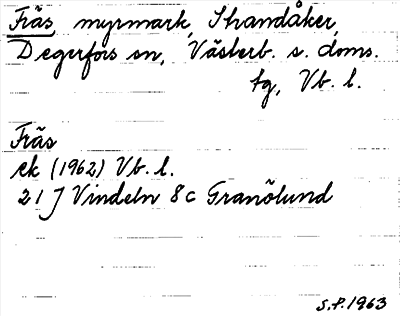 Fräs myrmark, Strandåker,
Degerfors sn, Västerb. s. doms.
tg, Vb. l.
Fräs
ek (1962) Vb. l.
21 J Vindeln 8 c Granölund
S.P. 1963